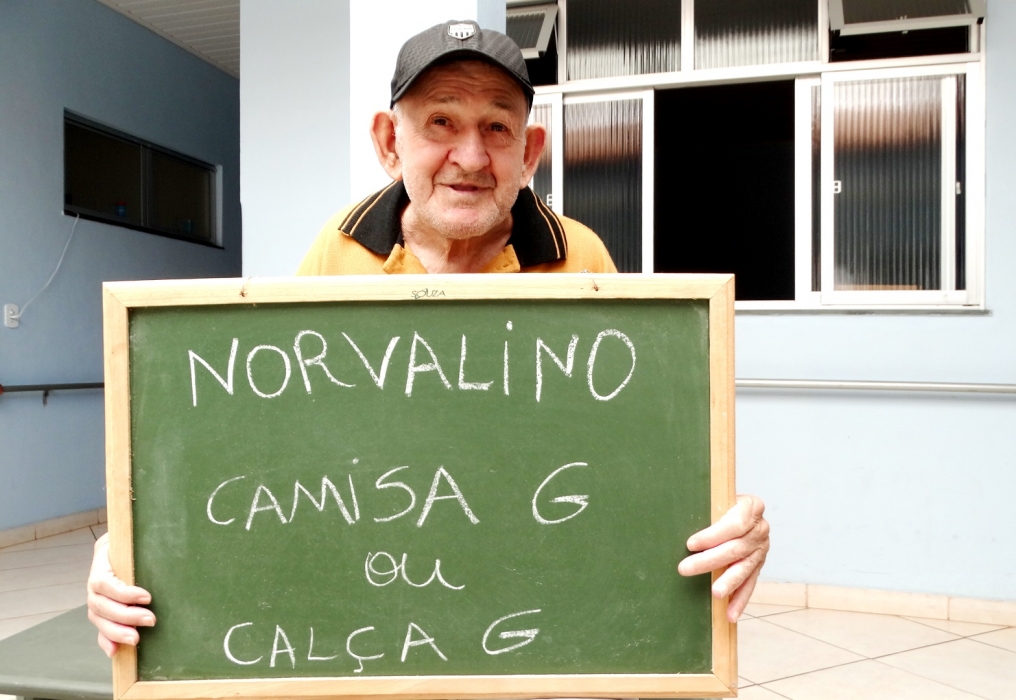 SOUZA
NORVALiNO
CAMiSA G
ou
CALÇA G